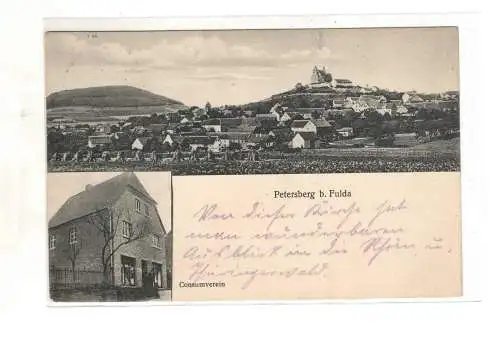 Petersberg b. Fulda
Von dieser Kirche hat
man wunderbaren
Ausblick in die Rhön u.
Thüringerwald.
Consumverein